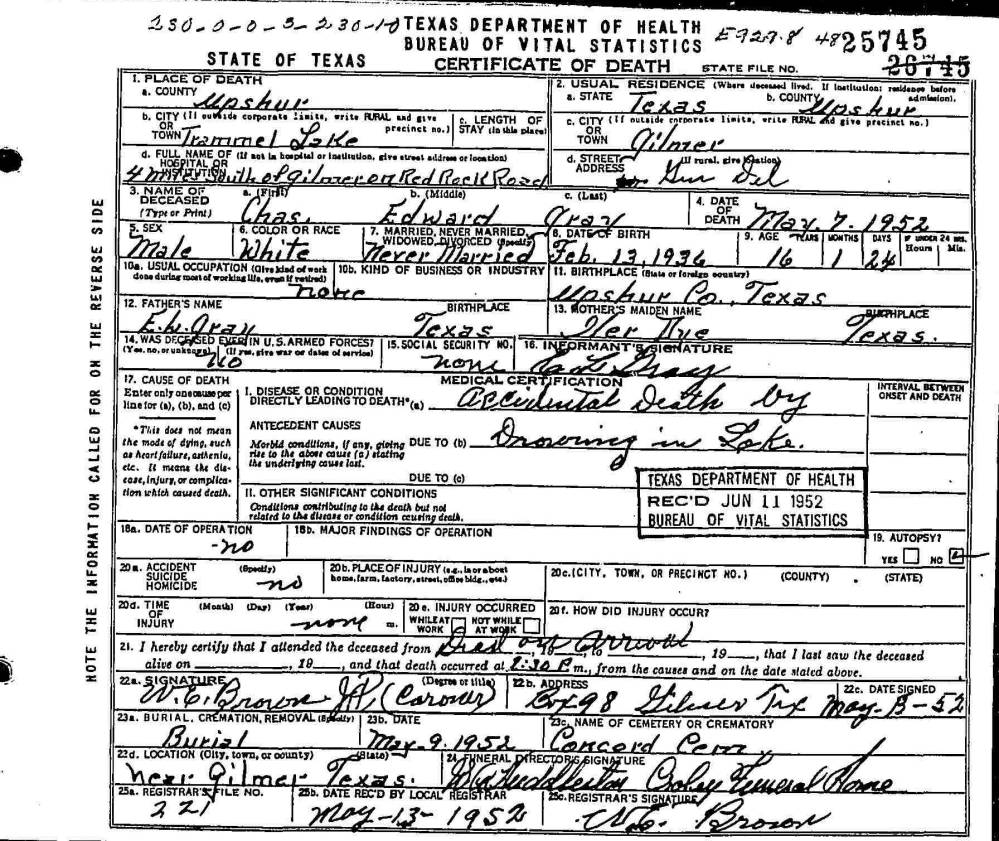 230-0-0-5-230-10 TEXAS DEPARTMENT OF HEALTH E929.8 48 25745
BUREAU OF VITAL STATISTICS
STATE OF TEXAS CERTIFICATE OF DEATH STATE FILE NO. 26745
1. PLACE OF DEATH
a. COUNTY Upshur
2. USUAL RESIDENCE (Where deceased lived. If institution: residence before admission).
a. STATE Texas b. COUNTY Upshur
b. CITY (If outside corporate limits, write RURAL and give precinct no.)
OR TOWN Trammel Lake
c. LENGTH OF STAY (in this place)
c. CITY (If outside corporate limits, write RURAL and give precinct no.)
OR TOWN Gilmer
d. FULL NAME OF (If not in hospital or institution, give street address or location)
HOSPITAL OR INSTITUTION 4 miles South of Gilmer on Red Rock Road
d. STREET ADDRESS (If rural, give location)
Gen Del
3. NAME OF DECEASED (Type or Print)
a. (First) Chas. b. (Middle) Edward c. (Last) Gray
4. DATE OF DEATH May. 7. 1952
5. SEX Male
6. COLOR OR RACE White
7. MARRIED, NEVER MARRIED, WIDOWED, DIVORCED (Specify) Never Married
8. DATE OF BIRTH Feb. 13, 1936
9. AGE YEARS 16 MONTHS 1 DAYS 24 IF UNDER 24 HRS. Hours Min.
10a. USUAL OCCUPATION (Give kind of work done during most of working life, even if retired) none
10b. KIND OF BUSINESS OR INDUSTRY
11. BIRTHPLACE (State or foreign country) Upshur Co., Texas
12. FATHER'S NAME E.L. Gray BIRTHPLACE Texas
13. MOTHER'S MAIDEN NAME Iler Dye BIRTHPLACE Texas.
14. WAS DECEASED EVER IN U.S. ARMED FORCES? (Yes, no, or unknown) (If yes, give war or dates of service) No
15. SOCIAL SECURITY NO. none
16. INFORMANT'S SIGNATURE Gray
MEDICAL CERTIFICATION
17. CAUSE OF DEATH
Enter only one cause per line for (a), (b), and (c)
*This does not mean the mode of dying, such as heart failure, asthenia, etc. It means the disease, injury, or complication which caused death.
I. DISEASE OR CONDITION DIRECTLY LEADING TO DEATH*(a) accidental Death by
ANTECEDENT CAUSES
Morbid conditions, if any, giving rise to the above cause (a) stating the underlying cause last.
DUE TO (b) Drowing in Lake.
DUE TO (c)
INTERVAL BETWEEN ONSET AND DEATH
II. OTHER SIGNIFICANT CONDITIONS
Conditions contributing to the death but not related to the disease or condition causing death.
TEXAS DEPARTMENT OF HEALTH
REC'D JUN 11 1952
BUREAU OF VITAL STATISTICS
18a. DATE OF OPERATION -no
18b. MAJOR FINDINGS OF OPERATION
19. AUTOPSY?
YES NO
20a. ACCIDENT SUICIDE HOMICIDE (Specify) no
20b. PLACE OF INJURY (e.g., in or about home, farm, factory, street, office bldg., etc.)
20c. (CITY, TOWN, OR PRECINCT NO.) (COUNTY) (STATE)
20d. TIME OF INJURY (Month) (Day) (Year) (Hour) none m.
20e. INJURY OCCURRED
WHILE AT WORK NOT WHILE AT WORK
20f. HOW DID INJURY OCCUR?
21. I hereby certify that I attended the deceased from Dead on Arrival, 19, that I last saw the deceased
alive on , 19, and that death occurred at 2:30 P.m., from the causes and on the date stated above.
22a. SIGNATURE (Degree or title) W.E. Brown J.P. (Coroner)
22b. ADDRESS Box 98 Gilmer Tex
22c. DATE SIGNED May-13-52
23a. BURIAL, CREMATION, REMOVAL (Specify) Burial
23b. DATE May. 9. 1952
23c. NAME OF CEMETERY OR CREMATORY Concord Cem
23d. LOCATION (City, town, or county) (State) near Gilmer Texas.
24. FUNERAL DIRECTOR'S SIGNATURE Funeral Home
25a. REGISTRAR'S FILE NO. 221
25b. DATE REC'D BY LOCAL REGISTRAR May-13-1952
25c. REGISTRAR'S SIGNATURE W.E. Brown
NOTE THE INFORMATION CALLED FOR ON THE REVERSE SIDE